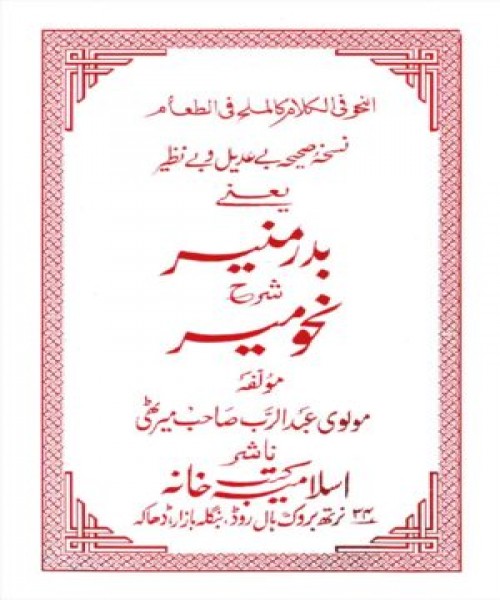 النحو فی الکلام کالملح فی الطعام
نسخهٔ صحیحه بے عدیل و بے نظیر
یعنے
بدر منیر
شرح
نحو میر
مؤلفهٔ
مولوی عبد الرب صاحب میرٹھی
ناشر
اسلامیہ کتب خانہ
۳۴ نرتھ بروک ہال روڈ، بنگلہ بازار، ڈھاکہ